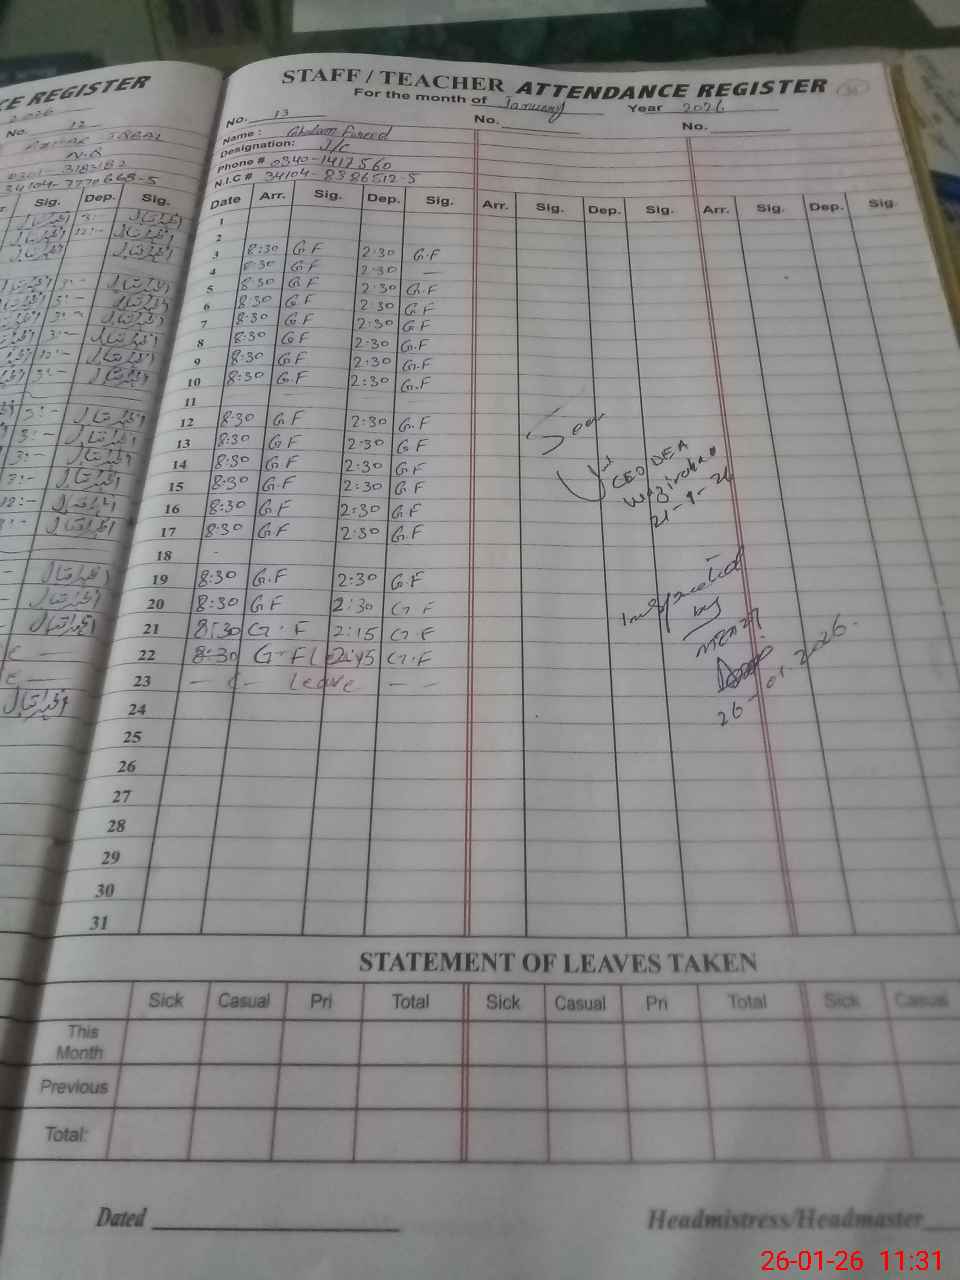 CE REGISTER
2026
No. 12
N.Q
0301-3183182
34104-7770668-5
Sig. Dep. Sig.
STAFF / TEACHER ATTENDANCE REGISTER
For the month of January Year 2026
No. 13 No. No.
Name: Ghulam Fareed
Designation: J/C
Phone # 0340-1417560
N.I.C # 34104-8386512-5
Date Arr. Sig. Dep. Sig. Arr. Sig. Dep. Sig. Arr. Sig. Dep. Sig.
1
2
3 8:30 G.F 2:30 G.F
4 8:30 G.F 2:30 —
5 8:30 G.F 2:30 G.F
6 8:30 G.F 2:30 G.F
7 8:30 G.F 2:30 G.F
8 8:30 G.F 2:30 G.F
9 8:30 G.F 2:30 G.F
10 8:30 G.F 2:30 G.F
11
12 8:30 G.F 2:30 G.F
13 8:30 G.F 2:30 G.F
14 8:30 G.F 2:30 G.F
15 8:30 G.F 2:30 G.F
16 8:30 G.F 2:30 G.F
17 8:30 G.F 2:30 G.F
18 -
19 8:30 G.F 2:30 G.F
20 8:30 G.F 2:30 G.F
21 8:30 G.F 2:15 G.F
22 8:30 G.F 2:45 G.F
23 — — Leave — —
24
25
26
27
28
29
30
31
Seen
CEO DEA
Wazirabad
21-1-26
Inspected
by
26-01-2026.
STATEMENT OF LEAVES TAKEN
Sick Casual Pri Total Sick Casual Pri Total Sick Casual
This Month
Previous
Total:
Dated
Headmistress/Headmaster
26-01-26 11:31